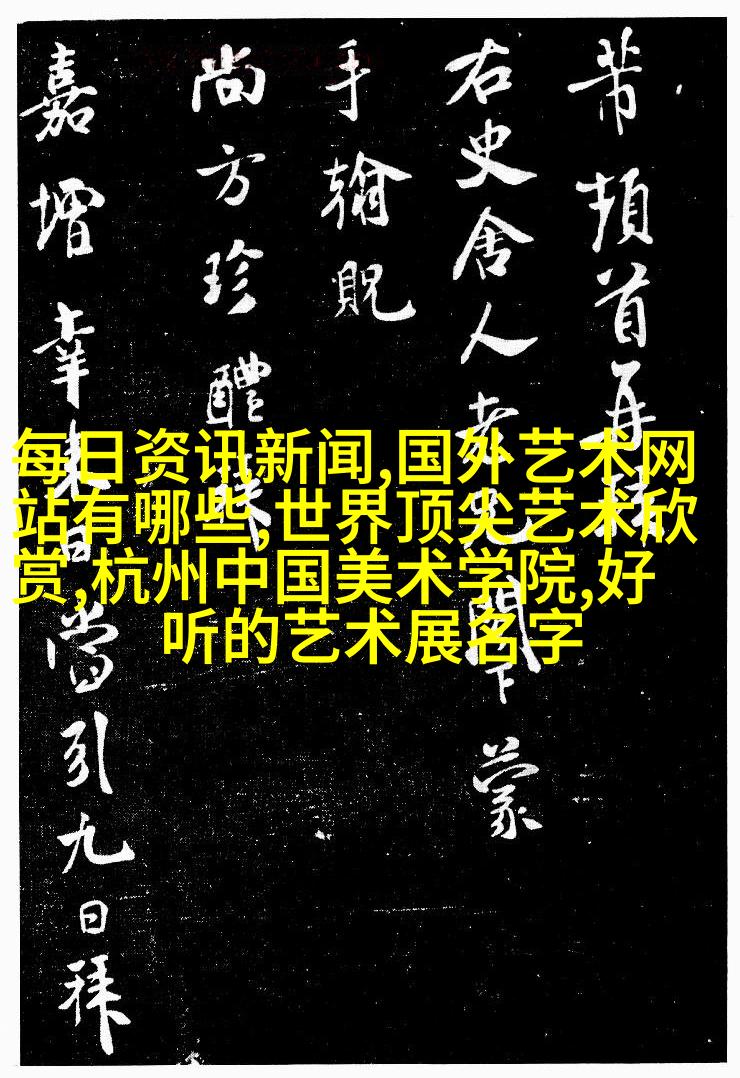 芾頓首再
右史舍人老兄下蒙
手翰貺
尚方珍醴
嘉增幸来日當引九日拜
每日资讯新闻,国外艺术网
站有哪些,世界顶尖艺术欣
赏,杭州中国美术学院,好
听的艺术展名字